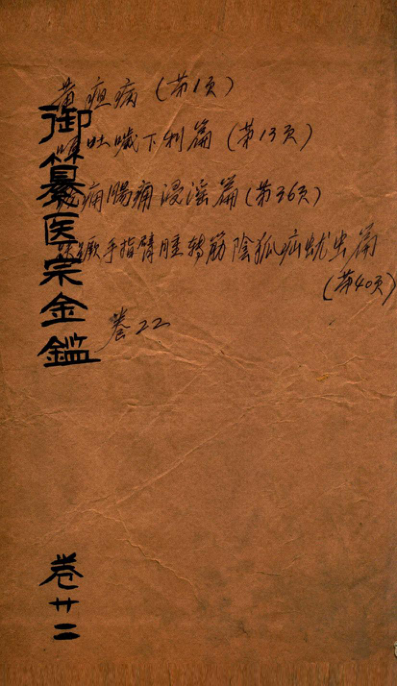 御纂医宗金鑑
卷廿二
黄疸病(第1页)
吐噦下利篇(第13页)
痈腸痈浸淫篇(第36页)
手指臂腫转筋陰狐疝蚘虫篇
(第40页)
卷22